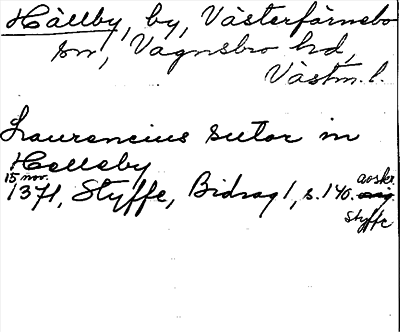 Hällby, by, Västerfärnebo
sn, Vagnsbro hd,
Västm. l.
Laurencius sutor in
Hælleby
15 nov.
1371, Styffe, Bidrag 1, s. 140. avskr.
Styffe